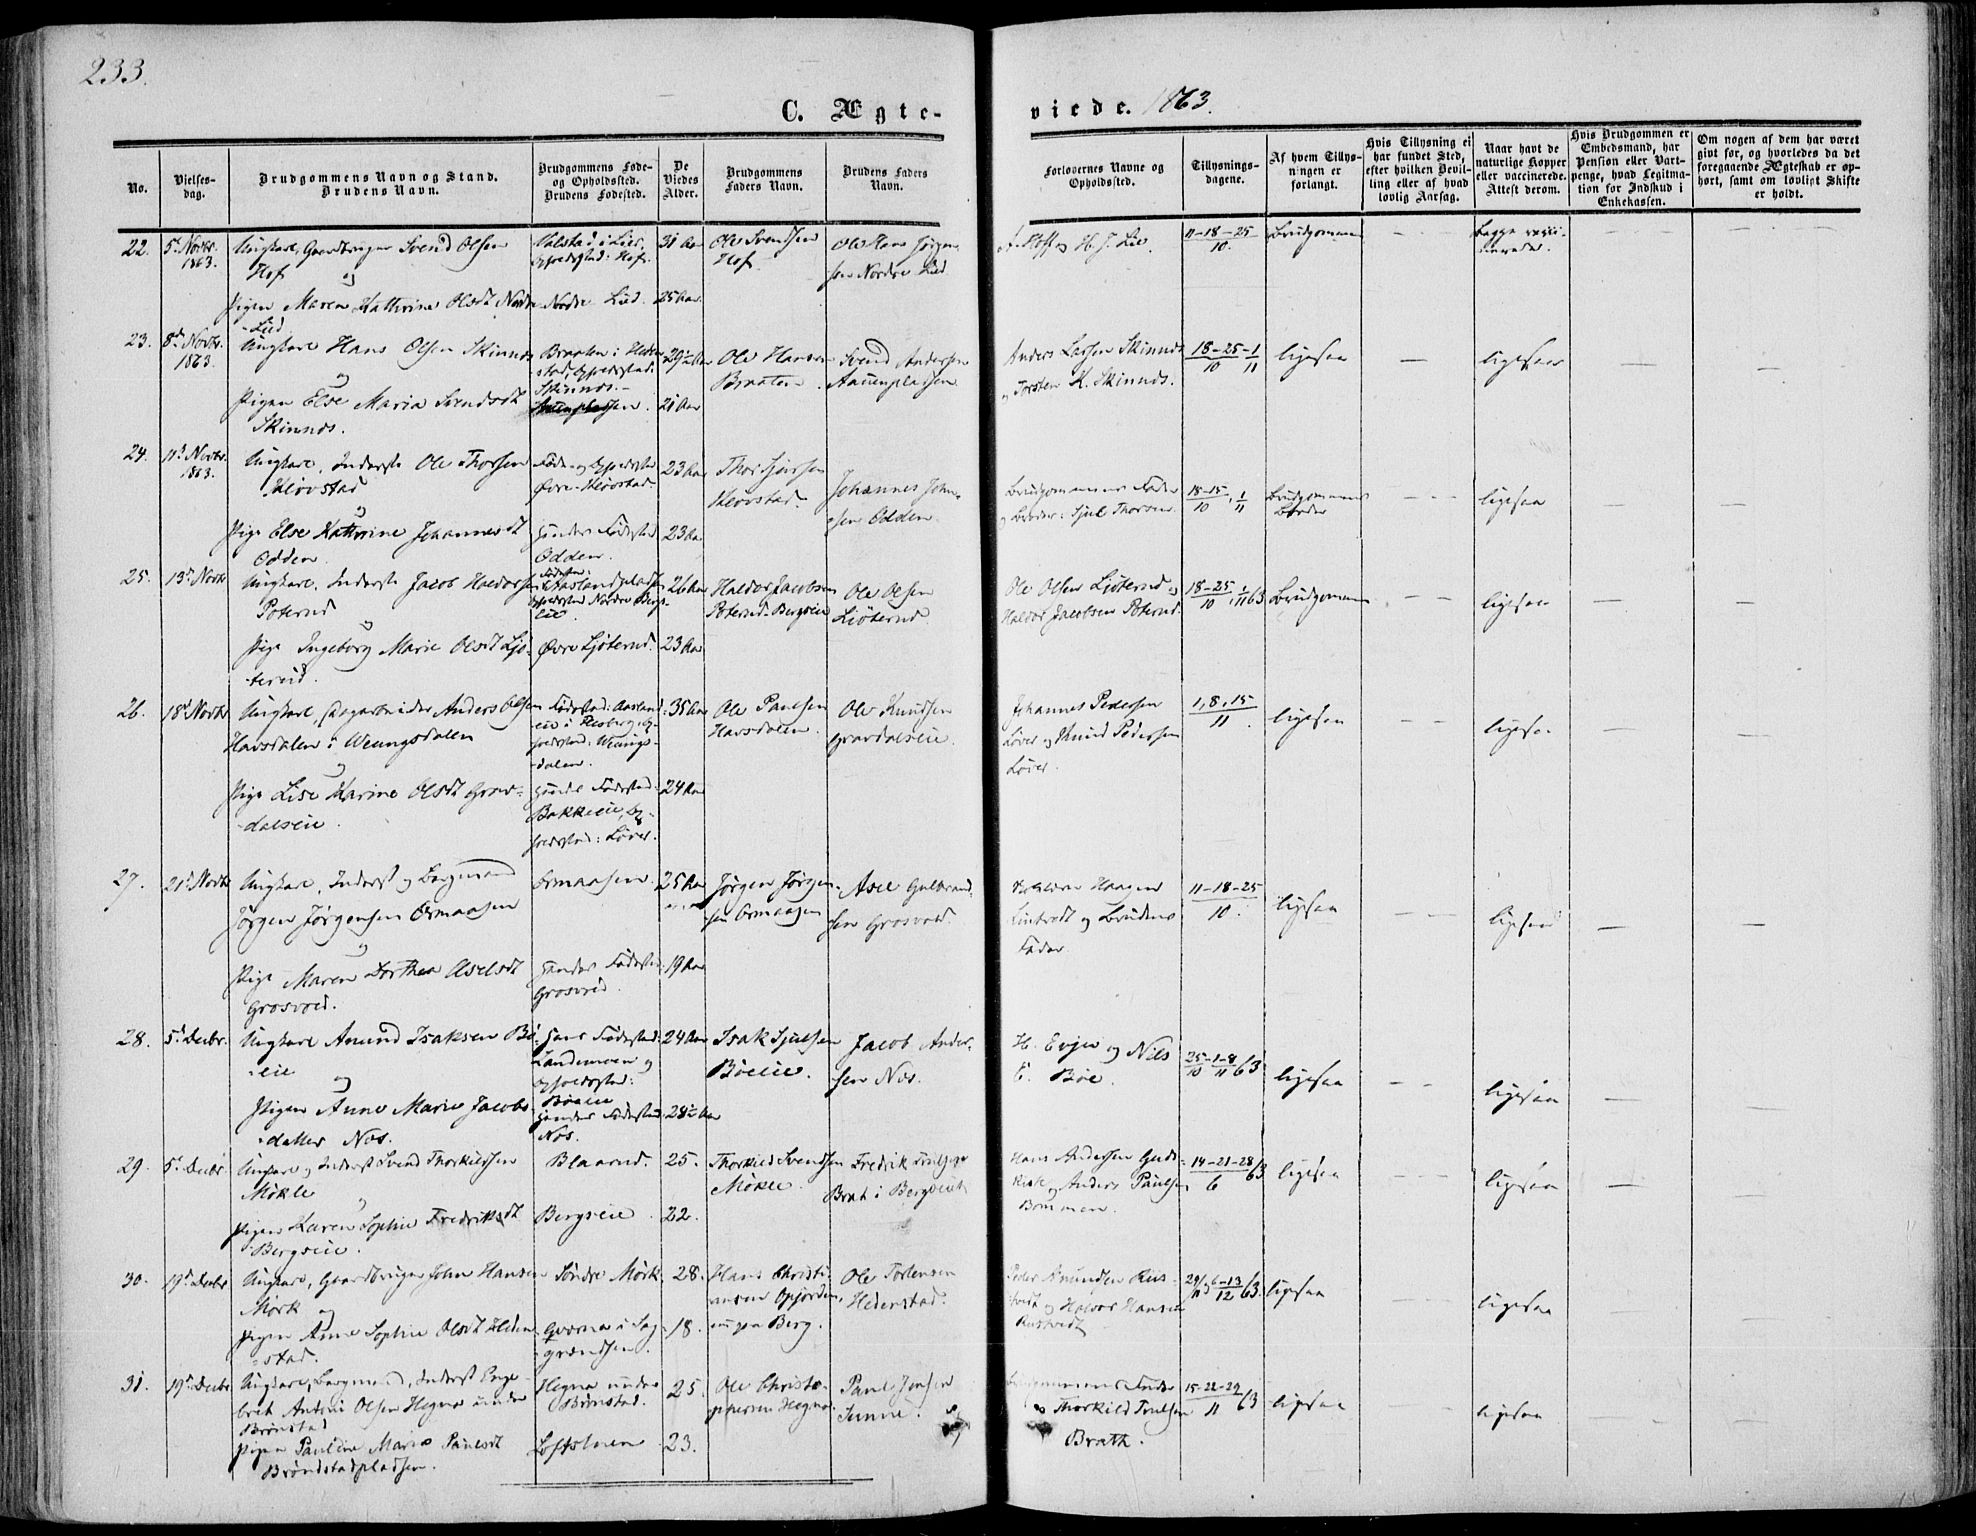 233.
C. Ægte-
viede. 1863.
No.
Vielses-
dag.
Brudgommens Navn og Stand.
Brudens Navn.
Brudgommens Føde-
og Opholdssted.
Brudens Fødested.
De
Viedes
Alder.
Brudgommens
Faders Navn.
Brudens Faders
Navn.
Forlovernes Navne og
Opholdssted.
Tillysnings-
dagene.
Af hvem Tillys-
ningen er
forlangt.
Hvis Tillysning ei
har fundet Sted,
efter hvilken Bevil-
ling eller af hvad
lovlig Aarsag.
Naar havt de
naturlige Kopper
eller vaccinerede.
Attest derom.
Hvis Brudgommen er
Embedsmand, har
Pension eller Vart-
penge, hvad Legitima-
tion for Indskud i
Enkekassen.
Om nogen af dem har været
givt før, og hvorledes da det
foregaaende Ægteskab er op-
hørt, samt om lovligt Skifte
er holdt.
22. 5t Novbr. 1863.
Ungkarl, Gaardbruger Svend Olsen
Hof
og
Pigen Maren Kathrine Olsdt Nordre
Lied
Valstad i Lier,
Opholdsted: Hof.
Nordre Lied.
31 Aar
25 Aar
Ole Svendsen
Hof
Ole Hans Jørgen-
sen Nordre Lied
A. Hoff og H. J. Lie.
11-18-25
10.
Brudgommen
begge vacci-
nerede.
23. 8de Novbr. 1863.
Ungkarl Hans Olsen Skinnes
og
Pigen Else Maria Svendsdt
Skinnes.
Braaten i Heden-
stad, Opholdsted:
Skinnes.
21 Aar
Ole Hansen
Braaten.
Svend Andersen
Aasenpladsen
Anders Larsen Skinnes
og Torsten K. Skinnes.
18-25-1
10 11
ligesaa
ligesaa
24. 11te Novbr. 1863.
Ungkarl, Inderst Ole Thorsen
Kløvstad
og
Pige Else Kathrine Johannesdt
Odden.
Føde- og Opholdsted
Øvre Kløvstad.
Hendes Fødested
Odden.
23 Aar
23 Aar
Kløvstad.
Johannes John-
sen Odden.
Brudgommens Fader
og Broder: Kjul Thorsen
Brudgommens
Broder
ligesaa
25. 13de Novbr
Ungkarl, Inderst Jacob Haldorsen
Poterud
og
Pige Ingeborg Marie Olsdt Ljø-
terud.
Øvre Ljøterud.
26 Aar
23 Aar
Haldor Jacobsen
Poterud-Bergseie
Ole Olsen
Ljøterud
Ole Olsen Ljøterud og
Haldor Jacobsen Poterud.
18-25 1
10 11 63
Brudgommen
ligesaa
26. 18de Novbr
Ungkarl, Dagarbeider Anders Olsen
Havsdalen i Weungsdalen
og
Pige Lise Karine Olsdt Grav-
dalseie.
Hendes Fødested:
Bakkeeie, Op-
holdsted: Løver.
35 Aar
24 Aar
Ole Paulsen
Havsdalen.
Ole Knudsen
Gravdalseie.
Johannes Pedersen
Løver og Knud Pedersen
Løver.
1, 8, 15
11.
ligesaa
ligesaa
27. 21de Novbr
Ungkarl, Inderst og Bergmand
Jørgen Jørgensen Ormaasen
og
Pige Maren Dorthea Aselsdt
Grosvold.
Ormaasen.
Hendes Fødested:
Grosvold.
25 Aar
19 Aar
Jørgen Jørgen-
sen Ormaasen
Asel Gulbrand-
sen Grosvold.
og Brudens
Fader
11-18-25
10.
ligesaa
ligesaa
28. 5te Decbr.
Ungkarl Amund Isaksen Bø-
eie
og
Pigen Anne Marie Jacobs-
datter Næs.
Hans Fødested:
Landemoen og
Opholdsted:
Bøeeie
Hendes Fødested
Næs.
24 Aar
28½ Aar
Isak Kjulsen
Bøeeie.
Jacob Ander-
sen Næs.
H. Evju og Nils
E. Bøe.
25-1-8
10 11 63
ligesaa
ligesaa
29. 5te Decbr.
Ungkarl og Inderst Svend Thorkildsen
Møkle
og
Pigen Karen Sophie Fredriksdt
Bergseie.
Blaarud.
Bergseie.
25.
22.
Thorkild Svendsen
Møkle.
Fredrik Trulsen
Brat i Bergseie
Hans Andersen Guds-
kirk og Anders Paulsen
Bommen.
14-21-28
6 63
ligesaa
ligesaa
30. 19de Decbr
Ungkarl, Gaardbruger John Hansen
Mørk og
Pigen Anne Sophie Olsdt Heden-
stad.
Søndre Mørk.
Qværna i Sag-
grændsen.
28.
18.
Hans Christi-
ansen Opjorden,
nu paa Berg.
Ole Torstensen
Hedenstad.
Peder Amundsen Rus-
tvedt og Halvor Hansen
Rustvedt
29/11 6-13/12 63.
ligesaa
ligesaa
31. 19de Decbr
Ungkarl, Bergmand, Inderst Enge-
bret Antoni Olsen Hegna under
Brønstad
Pigen Pauline Marie Paulsdt
Brøndstadpladsen.
Hegna under
Brønstad.
Loftstuen
25.
23.
Ole Christo-
phersen Hegna.
Paul Jensen
Brudgommens Fader
og Thorkild Trulsen
Brath.
15-22-29
11 63
ligesaa
ligesaa